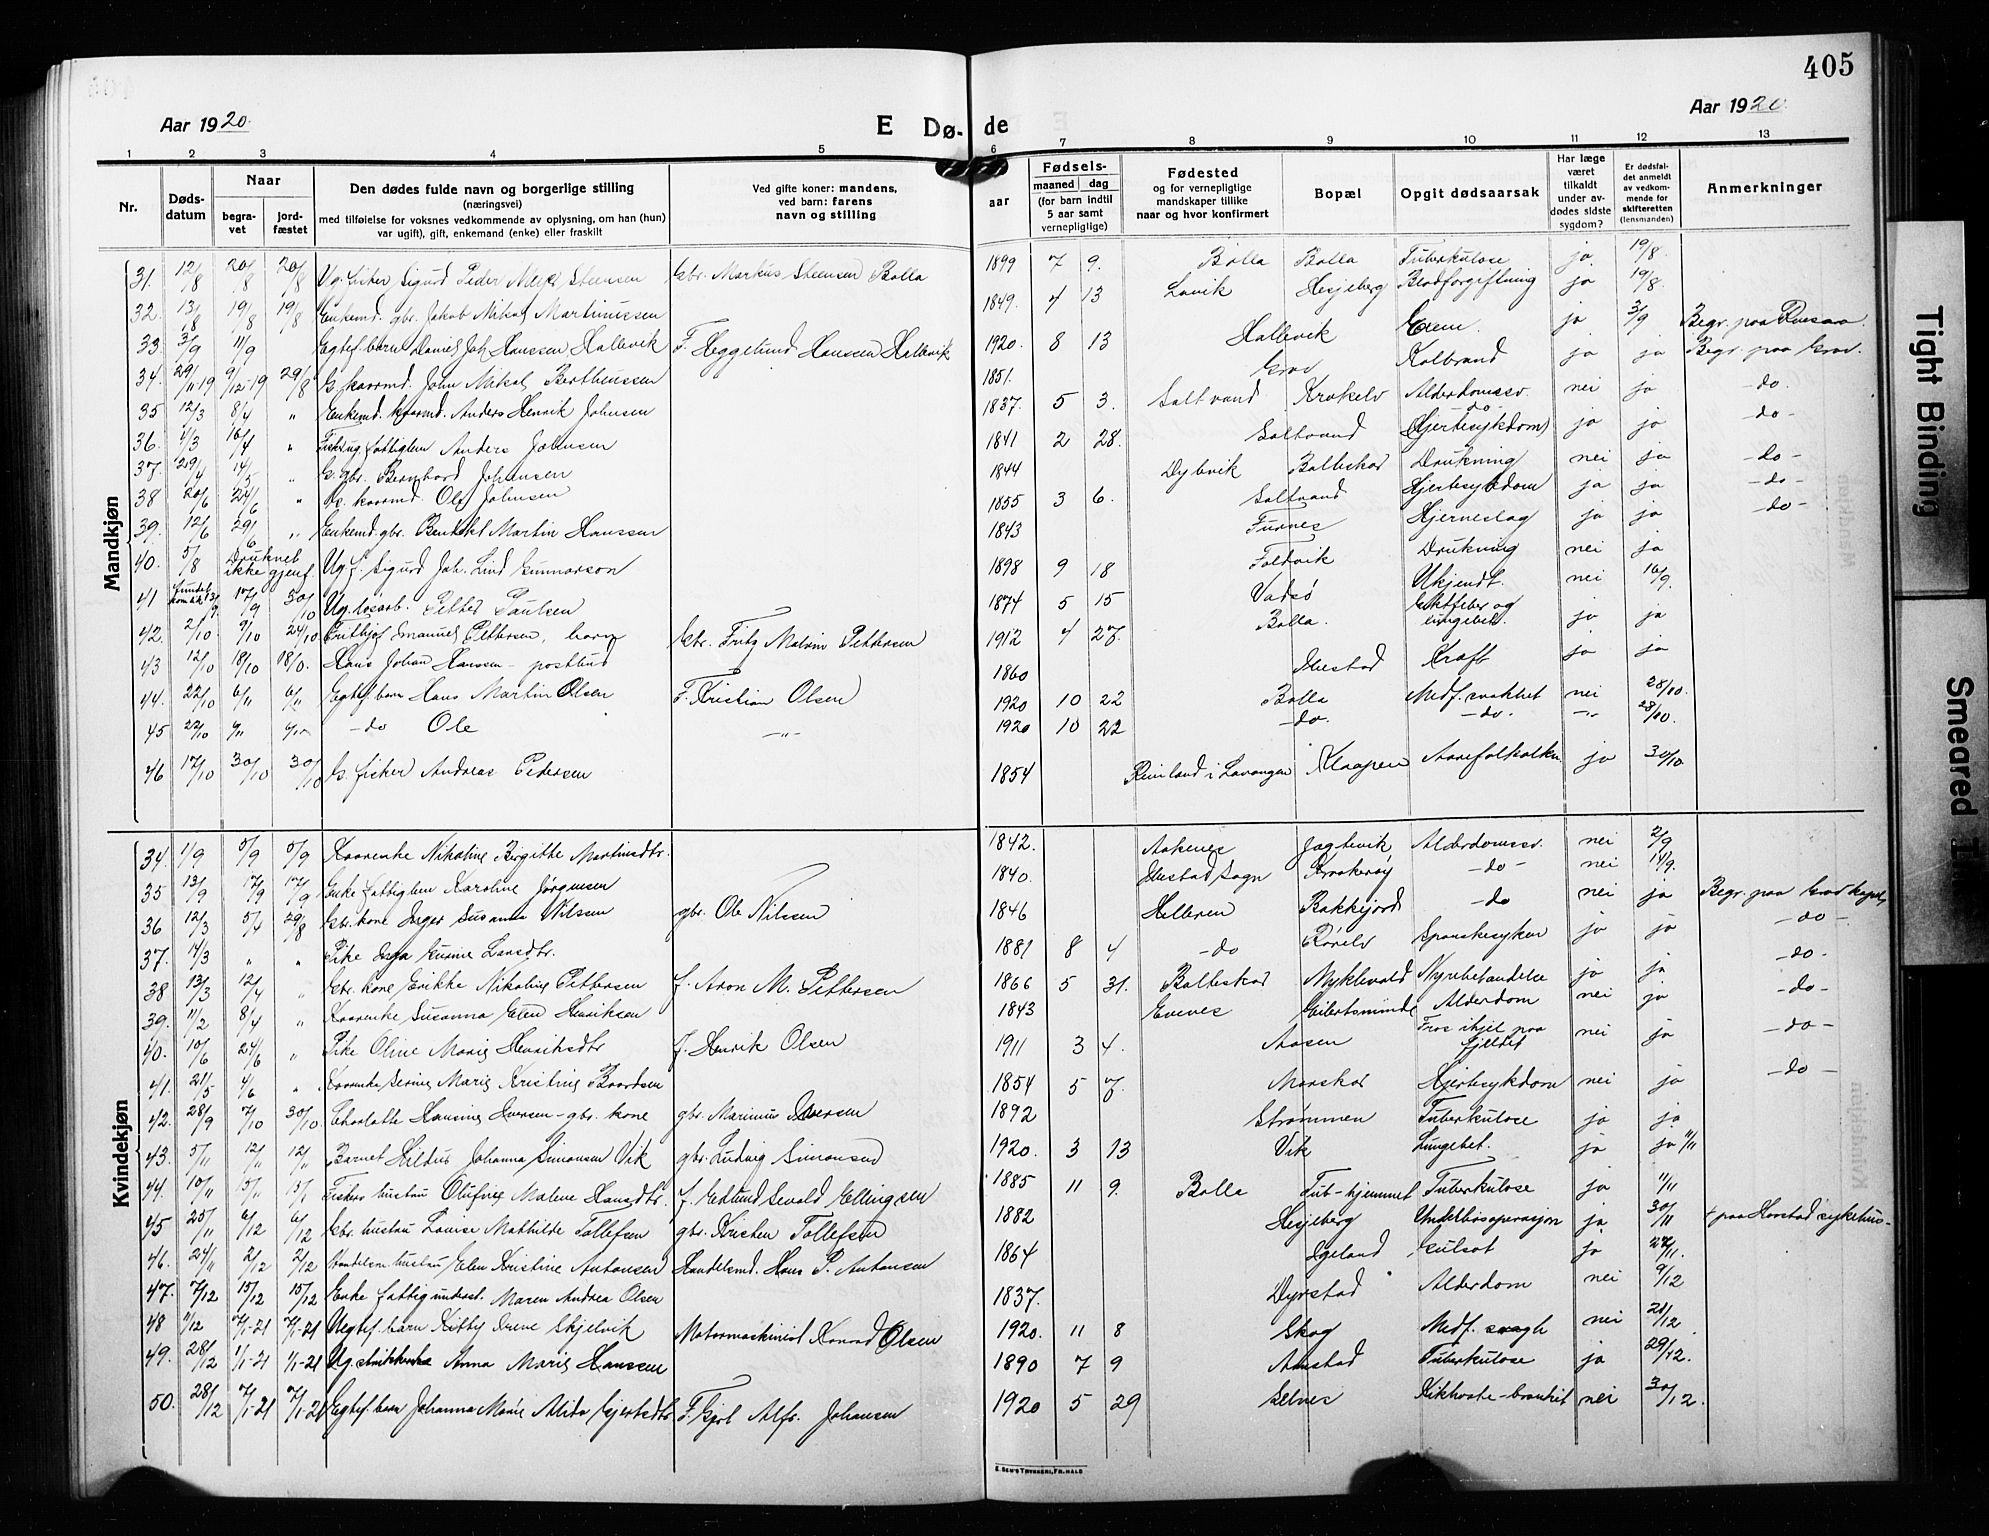 405
Aar 1920.
E Dø- de
Aar 1920.
1 2 3 4 5 6 7 8 9 10 11 12 13
Nr.
Døds-datum
Naar
begra-vet
jord-fæstet
Den dødes fulde navn og borgerlige stilling
(næringsvei)
med tilføielse for voksnes vedkommende av oplysning, om han (hun)
var ugift), gift, enkemand (enke) eller fraskilt
Ved gifte koner: mandens,
ved barn: farens
navn og stilling
aar
Fødsels-
maaned dag
(for barn indtil
5 aar samt
vernepligtige)
Fødested
og for vernepligtige
mandskaper tillike
naar og hvor konfirmert
Bopæl
Opgit dødsaarsak
Har læge
været
tilkaldt
under av-
dødes sidste
sygdom?
Er dødsfal-
det anmeldt
av vedkom-
mende for
skifteretten
(lensmanden)
Anmerkninger
Mandkjøn
31. 12/8 20/8 20/8 Ug. fisker Sigurd Peder Meyer Steensen Gbr. Markus Steensen Balla 1899 7 9. Balla Balla Tuberkulose ja 19/8
32. 13/8 19/8 19/8 Enkemd. gbr. Jakob Nikolai Martinussen 1849. 4 13 Lavik Hesjeberg Blodforgiftning ja 19/8.
33. 3/9 11/9 Egtef. barn Daniel Joh. Hanssen Hallevik F. Heggelund Hansen Hallevik 1920. 8 13 Hallevik ja 3/9 Begr. paa
34. 29/11-19 9/12-19 29/8 G. kaarmd. John Mikal Bertheussen 1851. Grov Kolbrand ja ja Begr. paa Grov.
35 12/3 8/4 " Enkemd. kaarmd. Anders Henrik Johnsen 1837. 5 3. Saltvand Krokelv Alderdomssv. nei ja -do.
36. 4/3 16/4 " Anders Jakobsen 1841 2 28. Saltvand -do (Hjertesykdom) ja ja -do-
37. 29/4 14/5 " G. gbr. Bernhard Johansen 1844 Dybvik Balteskar Drukning nei ja -do-
38 20/6 24/6 " G. kaarmd. Ole Johnsen 1855 3 6. Saltvand Hjertesykdom ja ja -do-
39. 12/6 29/6 " Enkemd. gbr. Bendikt Martin Hanssen 1843 Furnes Hjerneslag ja ja -do-
40. 5/8 Druknet ikke gjenf. Ug. f. Sigurd Joh. Lind Gunnarson 1898 9 18 Foldvik Drukning nei ja
41 17/9 30/10 Ug. løsarb. Petter Paulsen 1874 5 15 Vadsø Ukjendt. nei 16/9.
42. 2/10 9/10 24/10 Fritjof Emanuel Pettersen, barn Gbr. Fritz Malvin Pettersen 1912 4 27. Balla. og lungebet. ja ja
43 12/10 18/10 18/10. Hans Johan Hanssen - postbud 1860 Ibestad Kræft ja ja
44. 22/10 6/11 6/11 Egtef. barn Hans Martin Olsen F. Kristian Olsen 1920 10 22 Balla Medf. svakhet nei 28/10.
45 22/10 6/11 6/11 -do Ole -"- 1920 10 22 -do. -do. -"- 28/10.
46 17/10 30/10 30/10 G. fisker Andreas Pedersen 1854 Reinland i Lavangen Klaapen Aareforkalkn ja 30/10
Kvindekjøn
34. 1/9 5/9 5/9 Kaarenke Nikoline Birgitte Martinsdtr. 1842. Aakenes Jagtevik Alderdomssv. nei 2/9
35 13/9 17/9 17/9 Enke fattiglem Karoline Jørgensen 1840. Ibestad sogn Krokerøy -do- nei 14/9.
36 12/3 5/4 29/8 Gbr. kone Inger Susanna Nilsen gbr. Ole Nilssen 1846 Helleren Bakkejord -do nei ja Begr. paa Grov kapel
37. 14/3 " " Pike Inga Gurine Larsdtr. 1881 8 4 -do Rørelv Spanskesyken ja ja -do-
38 13/3 12/4 " Gbr. kone Erikke Nikoline Pettersen f. Aron M. Pettersen 1866 5 31. Balteskar Myklevold Nyrebetændelse ja ja -do-
39. 11/2 8/4 " Kaarenke Susanna Elen Henriksen 1843 Evenes Alderdom nei ja -do-
40. 10/6 24/6 " Pike Oline Marie Henriksdtr f. Henrik Olsen 1911 3 4. Aasen Fros ihjel paa fjeldet nei ja -do-
41. 21/5 4/6 " Kaarenke Serine Marie Kristine Baardsen 1854 5 7. Marskar Hjertesykdom nei ja -do-
42. 28/9 7/10 30/10 Charlotte Hansine Iversen - gbr. kone gbr. Marinius Iversen 1892 Strømmen Tuberkulose ja ja
43. 5/11 12/11 12/11 Barnet Hildur Johanna Simonsen Vik gbr. Ludvig Simonsen 1920. 3 13 Vik Lungebet. ja ja 11/11
44. 10/11 15/11 15/11 Fiskers hustru Olufine Malene Hansdtr. f. Edlund Sevald Ellingsen 1885 11 9. Balla Tub-hjemmet Tuberkulose ja 11/11
45 25/11 6/12 6/12 Gbr. hustru Lovise Mathilde Tollefsen gbr. Kristen Tollefsen 1882 Hesjeberg Underlivsoperasjon ja 30/11 + paa Harstad sykehus-
46. 24/11 2/12 2/12 hustru Elen Kristine Antonsen Handelsmd. Hans P. Antonsen 1864 Igeland Gulsot ja 27/11.
47. 7/12 15/12 15/12 Enke fattigunderst. Maren Andrea Olsen 1837. Dyrstad Alderdom nei 9/12
48 9/12 7/1-21 7/1-21 Uegtef. barn Kitty Irene Skjelvik Motormaskinist Konrad Olsen 1920. 11 8 Skog Medf. svagh nei 21/12
49. 28/12 1/1-21 1/1-21 Ug. Anna Marie Hanssen 1890 7 9 Anstad Tuberkulose ja 29/12.
50. 28/12 7/1-21 7/1-21 Egtef. barn Johanna Marie Alida Gjertsdtr F. Gjert Alfr. Johansen 1920 5 29 Selnes Kikhoste-bronkit nei 30/12.
E. SEM'S TRYKKERI, FR.HALD
Tight Binding
Smeared I